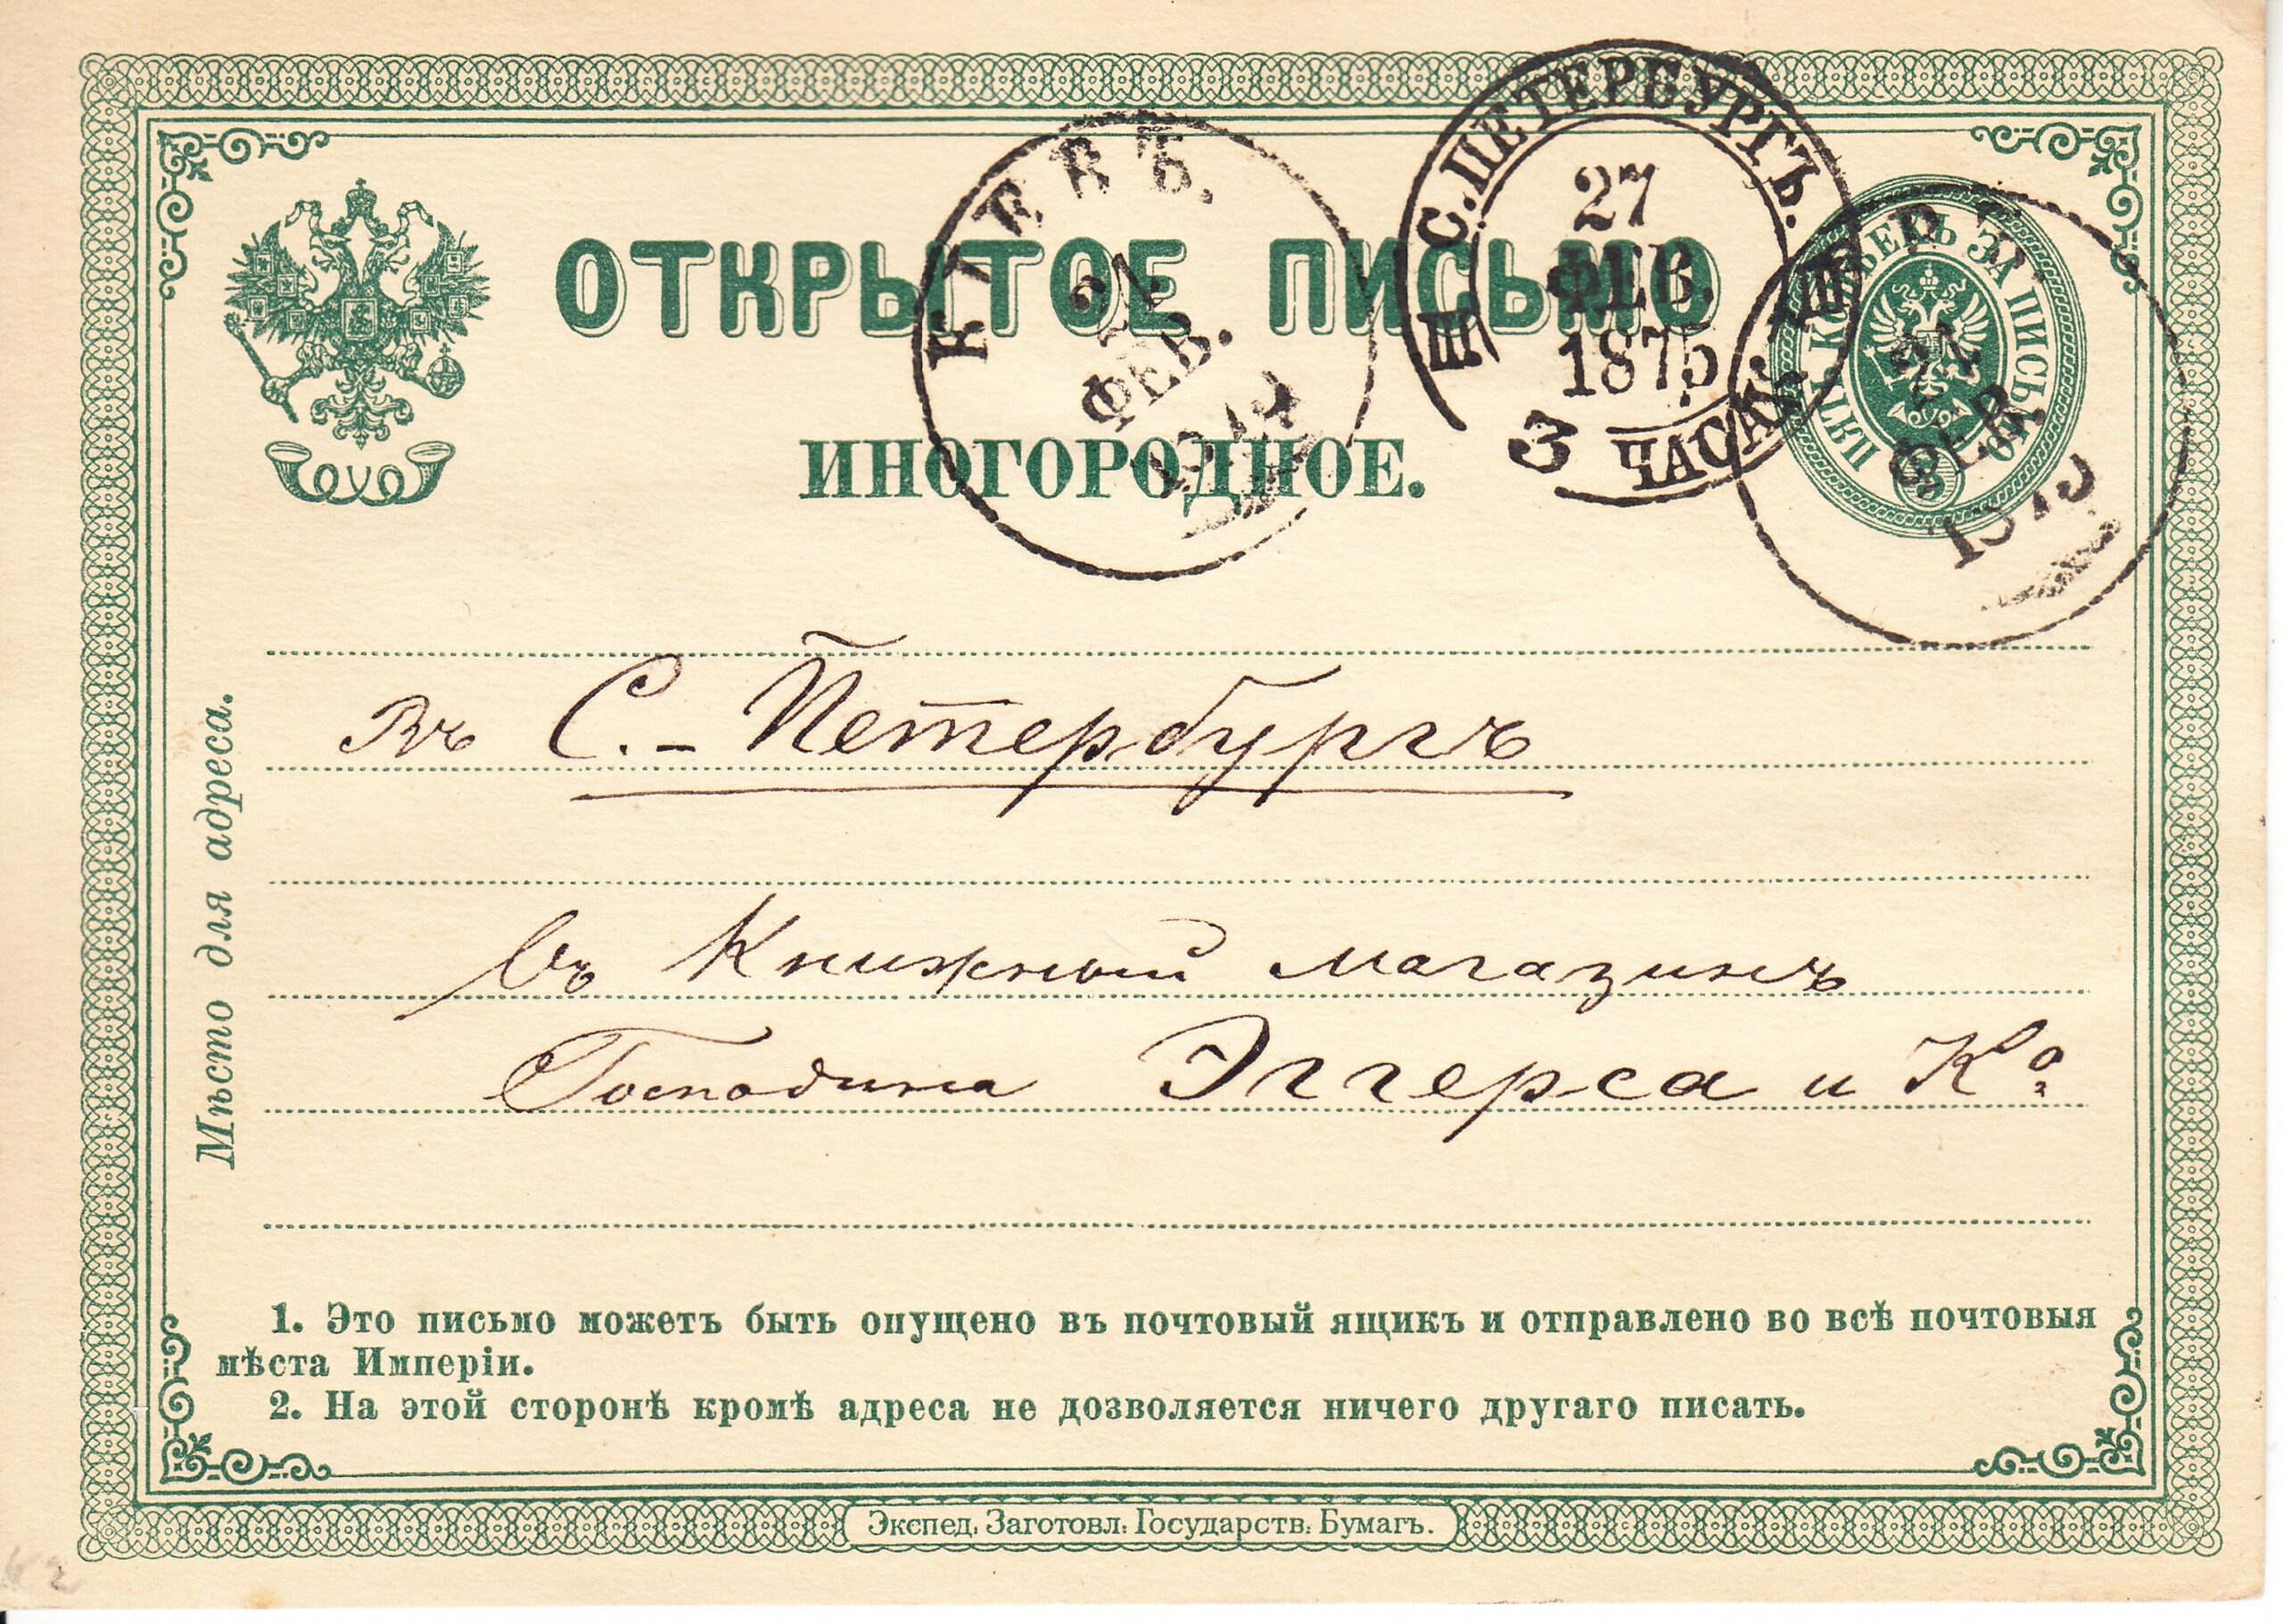 ОТКРЫТОЕ ПИСЬМО
ИНОГОРОДНОЕ.
КІЕВЪ.
ФЕВ.
С. ПЕТЕРБУРГЪ.
27
ФЕВ.
1875
3 ЧАСА
ПЯТЬ КОПѢЕКЪ ЗА ПИСЬМО
5
ФЕВ.
1875
Мѣсто для адреса.
Въ С.-Петербургъ
въ Книжный магазинъ
Господина Эггерса и Ко
1. Это письмо можетъ быть опущено въ почтовый ящикъ и отправлено во всѣ почтовыя
мѣста Имперіи.
2. На этой сторонѣ кромѣ адреса не дозволяется ничего другаго писать.
Экспед. Заготовл. Государств. Бумагъ.